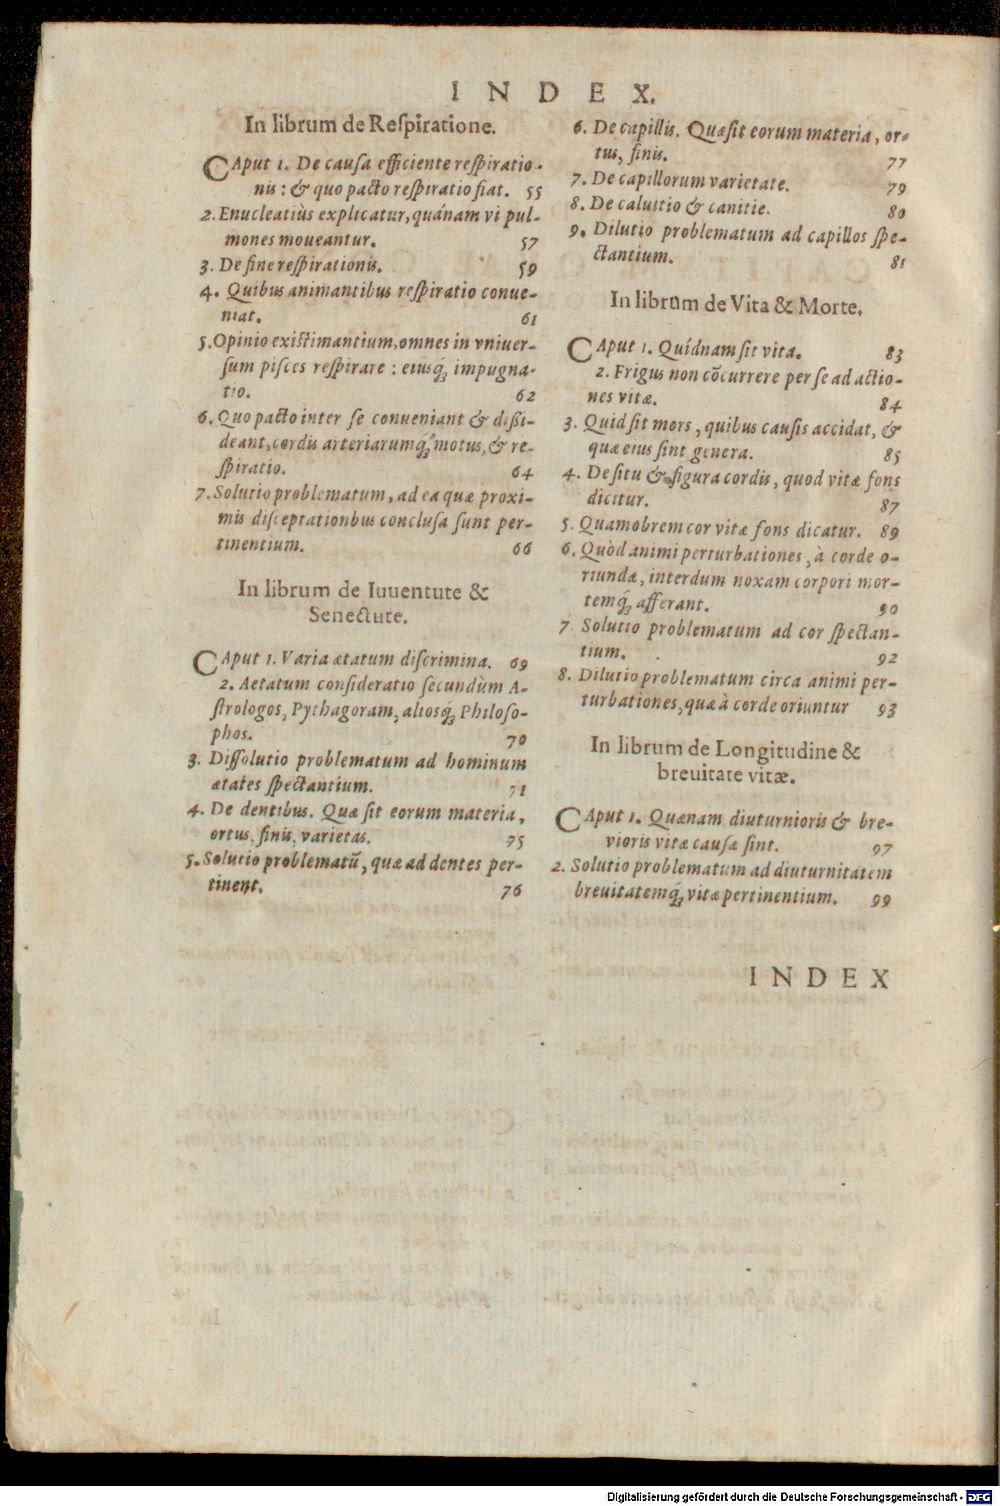 INDEX.
In librum de Reſpiratione.
CAput 1. De cauſa efficiente reſpiratio-
nis: & quo pacto reſpiratio fiat. 55
2. Enucleatiùs explicatur, quánam vi pul-
mones moueantur. 57
3. De fine reſpirationis. 59
4. Quibus animantibus reſpiratio conue-
niat. 61
5. Opinio exiſtimantium, omnes in vniuer-
ſum piſces reſpirare: eiusq́; impugna-
tio. 62
6. Quo pacto inter ſe conueniant & dißi-
deant, cordis arteriarumq́; motus, & re-
ſpiratio. 64
7. Solutio problematum, ad ea quæ proxi-
mis diſceptationbus concluſa ſunt per-
tinentium. 66
In librum de Iuuentute &
Senectute.
CAput 1. Varia ætatum diſcrimina. 69
2. Aetatum conſideratio ſecundùm A-
ſtrologos, Pythagoram, aliosq́; Philoſo-
phos. 70
3. Diſſolutio problematum ad hominum
ætates ſpectantium. 71
4. De dentibus. Quæ ſit eorum materia,
ortus, finis, varietas. 75
5. Solutio problematū, quæ ad dentes per-
tinent. 76
6. De capillis. Quæ ſit eorum materia, or-
tus, finis. 77
7. De capillorum varietate. 79
8. De caluitio & canitie. 80
9. Dilutio problematum ad capillos ſpe-
ctantium. 81
In librum de Vita & Morte.
CAput 1. Quidnam ſit vita. 83
2. Frigus non cōcurrere per ſe ad actio-
nes vitæ. 84
3. Quid ſit mors, quibus cauſis accidat, &
quæ eius ſint genera. 85
4. De ſitu & figura cordis, quod vitæ fons
dicitur. 87
5. Quamobrem cor vitæ fons dicatur. 89
6. Quòd animi perturbationes, à corde o-
riundæ, interdum noxam corpori mor-
temq́; afferant. 90
7. Solutio problematum ad cor ſpectan-
tium. 92
8. Dilutio problematum circa animi per-
turbationes, quæ à corde oriuntur 93
In librum de Longitudine &
breuitate vitæ.
CAput 1. Quænam diuturnioris & bre-
vioris vitæ cauſæ ſint. 97
2. Solutio problematum ad diuturnitatem
breuitatemq́; vitæ pertinentium. 99
INDEX
Digitalisierung gefördert durch die Deutsche Forschungsgemeinschaft - DFG